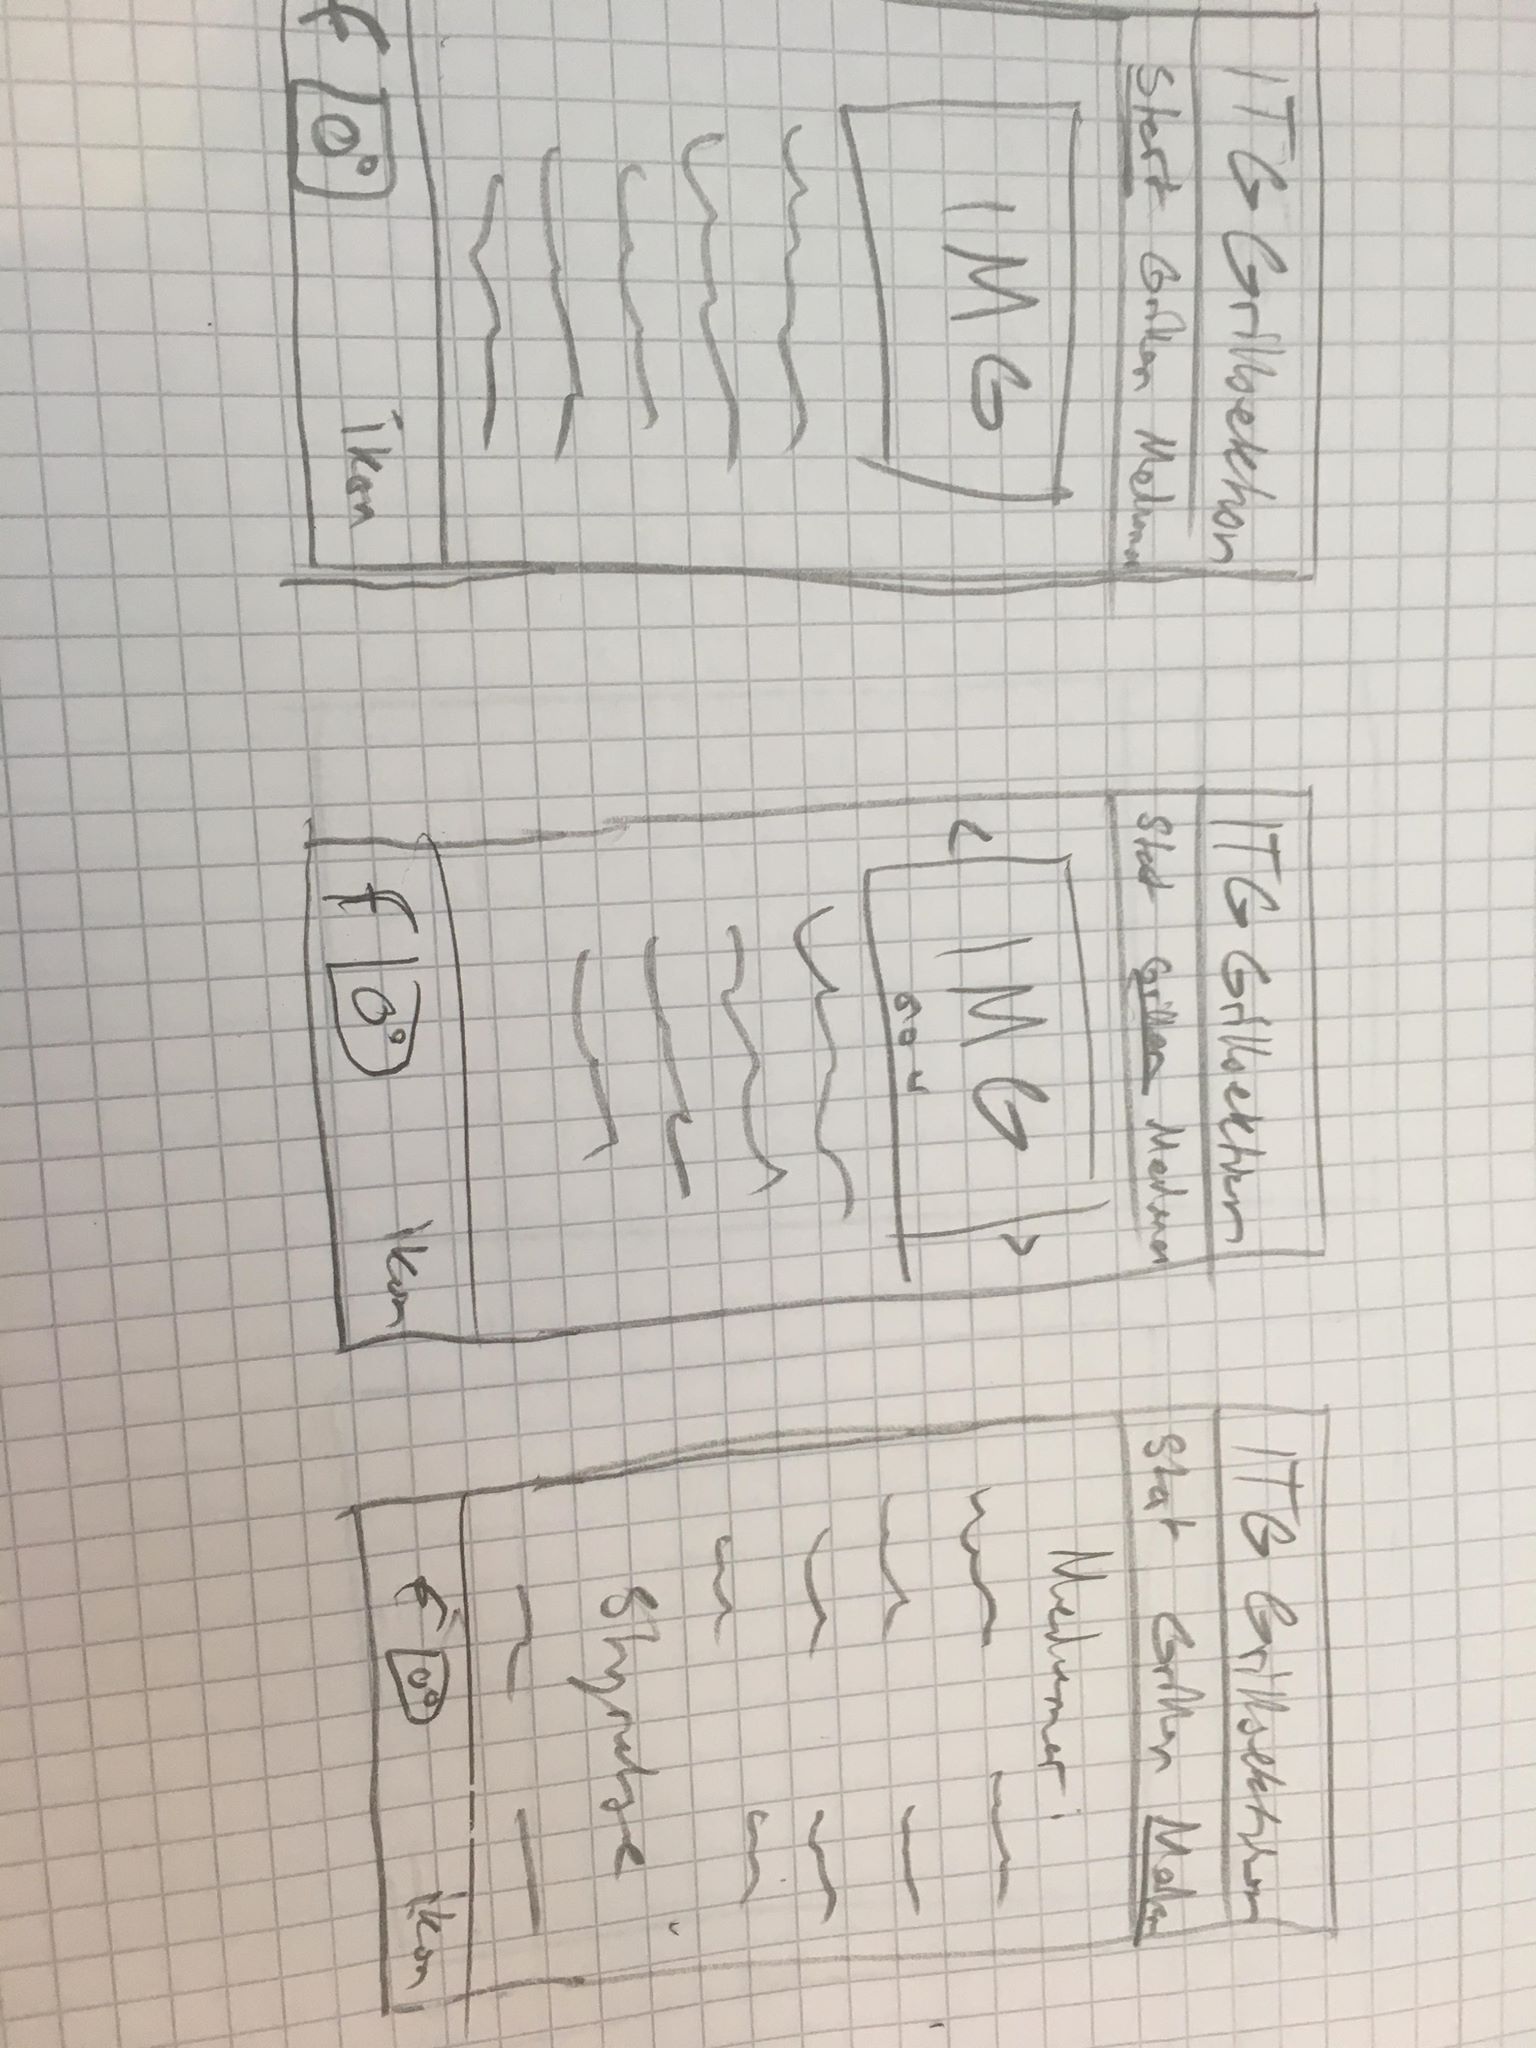 ITG Grillsektion
Start Grillen Medlemmar
IMG
f
ikon
ITG Grillsektion
Start Grillen Medlemmar
IMG
f
ikon
ITG Grillsektion
Start Grillen
Medlemmar
Styrelse
f
ikon